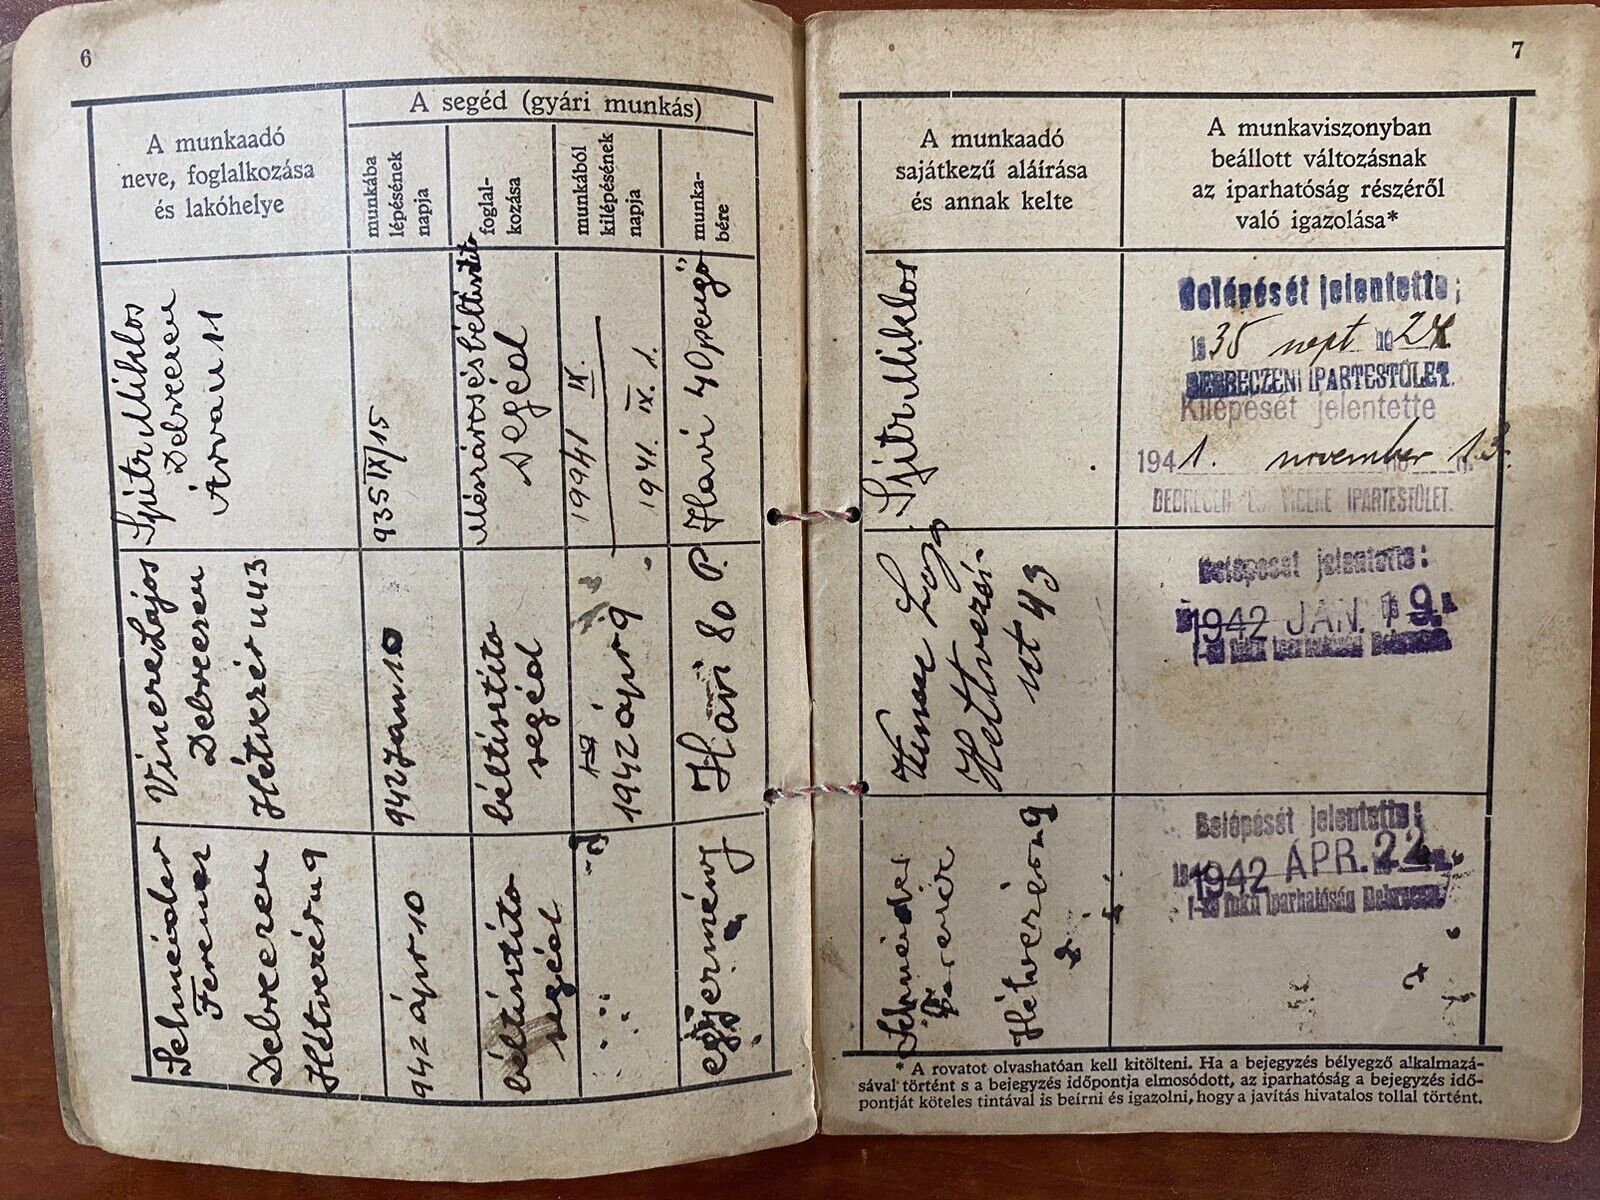 6
A munkaadó
neve, foglalkozása
és lakóhelye
A segéd (gyári munkás)
munkába
lépésének
napja
foglal-
kozása
munkából
kilépésének
napja
munka-
bére
Miklos
Debreczen
Árva u 11
935 IX/15
Mészáros és béltisztito
segéd
1941 IX. 1.
Havi 40 pengő
Lajos
Debreczen
Hétvezér u 43
942 Jan 10
béltisztito
segéd
1942 ápr 9
Havi 80 P.
Ferencz
Debreczen
Hétvezér u 9
942 ápr 10
béltisztito
segéd
egyezmény
7
A munkaadó
sajátkezű aláírása
és annak kelte
A munkaviszonyban
beállott változásnak
az iparhatóság részéről
való igazolása*
Miklos
Belépését jelentette:
1935 sept 24
DEBRECZENI IPARTESTÜLET.
Kilépését jelentette
1941. november 13.
IPARTESTÜLET.
ut 43
Belépését jelentette:
1942 JAN. 19.
I-ső fokú iparhatóság Debrecen
Hétvezér u 9
Belépését jelentette:
1942 ÁPR. 22
I-ső fokú iparhatóság Debrecen
* A rovatot olvashatóan kell kitölteni. Ha a bejegyzés bélyegző alkalmazá-
sával történt s a bejegyzés időpontja elmosódott, az iparhatóság a bejegyzés idő-
pontját köteles tintával is beírni és igazolni, hogy a javítás hivatalos tollal történt.